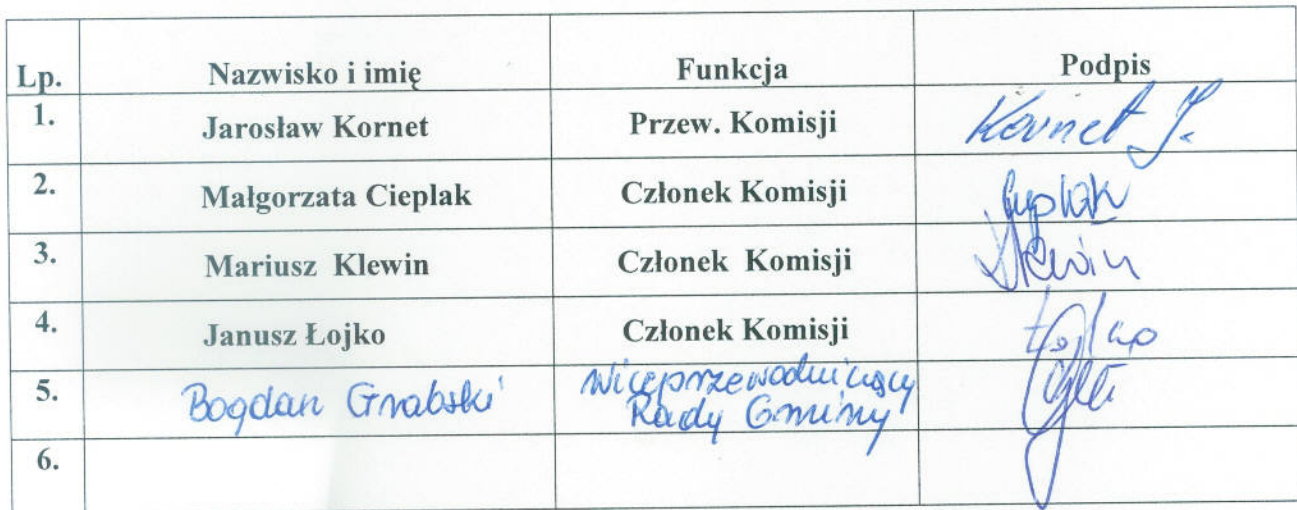 Lp. Nazwisko i imię Funkcja Podpis
1. Jarosław Kornet Przew. Komisji Kornet J.
2. Małgorzata Cieplak Członek Komisji
3. Mariusz Klewin Członek Komisji Klewin
4. Janusz Łojko Członek Komisji Łojko
5. Bogdan Grabski Wiceprzewodniczący
Rady Gminy
6.